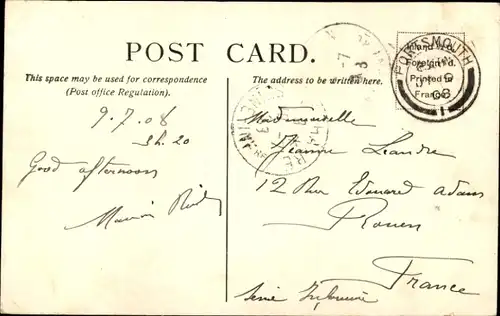 POST CARD.
This space may be used for correspondence
(Post office Regulation).
The address to be written here.
Inland ½d.
Foreign 1d.
Printed in
France
PORTSMOUTH
JY 9
08
1
9.7.08
3h.20
Good afternoon
Mademoiselle
Jeanne Leandre
12 Rue Edouard adam
Rouen
France
Seine Inférieure